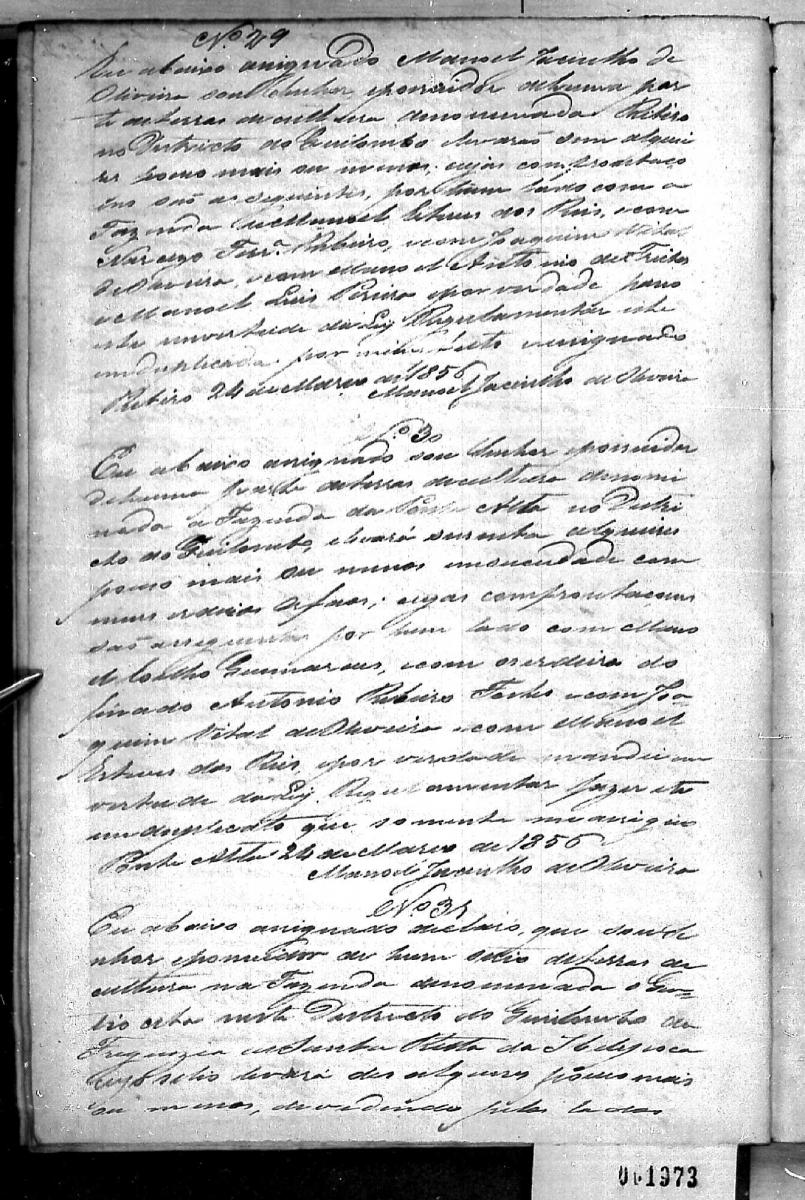 Nº 29
Eu abaixo asignado Manoel Jacintho de
Oliveira sou Senhor eposuidor dehuma par
te deterras decultura denominada Retiro
no Districto do Quilombo levarão Sem alquei
res pouco mais ou menos, cujas comfrontaço
ens são as seguintes, por hum lado com a
Fazenda de Manoel Esteves dos Reis, ecom
Narcizo Ferrª Ribeiro, ecom Joaquim Vital
de Oliveira, ecom Manoel Antonio de Freitas
e Manoel Luis Pereira epor verdade paço
este emvertude da Ley Regulamentar este
emduplicada por mim feito easignado
Retiro 24 de Março de 1856
Manoel Jacintho de Oliveira
Nº 30
Eu abaixo asignado sou Senhor eposuidor
dehuma parte deterras decultura denomi
nada a Fazenda da Ponte Alta no Destri
cto do Quilombo, elevará secenta alqueires
pouco mais ou menos emsociedade com
meus erdeiros; cujas comfrontaçoens
são asseguintes por hum lado com Mano
el Coelho Guimaraes, ecom oserdeiros do
finado Antonio Ribeiro Fortes ecom Joa
quim Vital de Oliveira ecom Manoel
Esteves dos Reis, epor verdade mandei em
vertude da Ley Regulamentar fazer este
emduplicata que somente me asigno
Ponte Alta 24 de Março de 1856
Manoel Jacintho de Oliveira
Nº 31
Eu abaixo asignado declaro, que sou Se
nhor eposuidor de hum sitio deterras de
cultura na Fazenda denominada o
sito neste Destricto do Quilombo da
Freguezia de Santa Ritta da Ibitipoca
cujo sitio levará des alqueires pouco mais
ou menos, devedindo pelos lados
061973